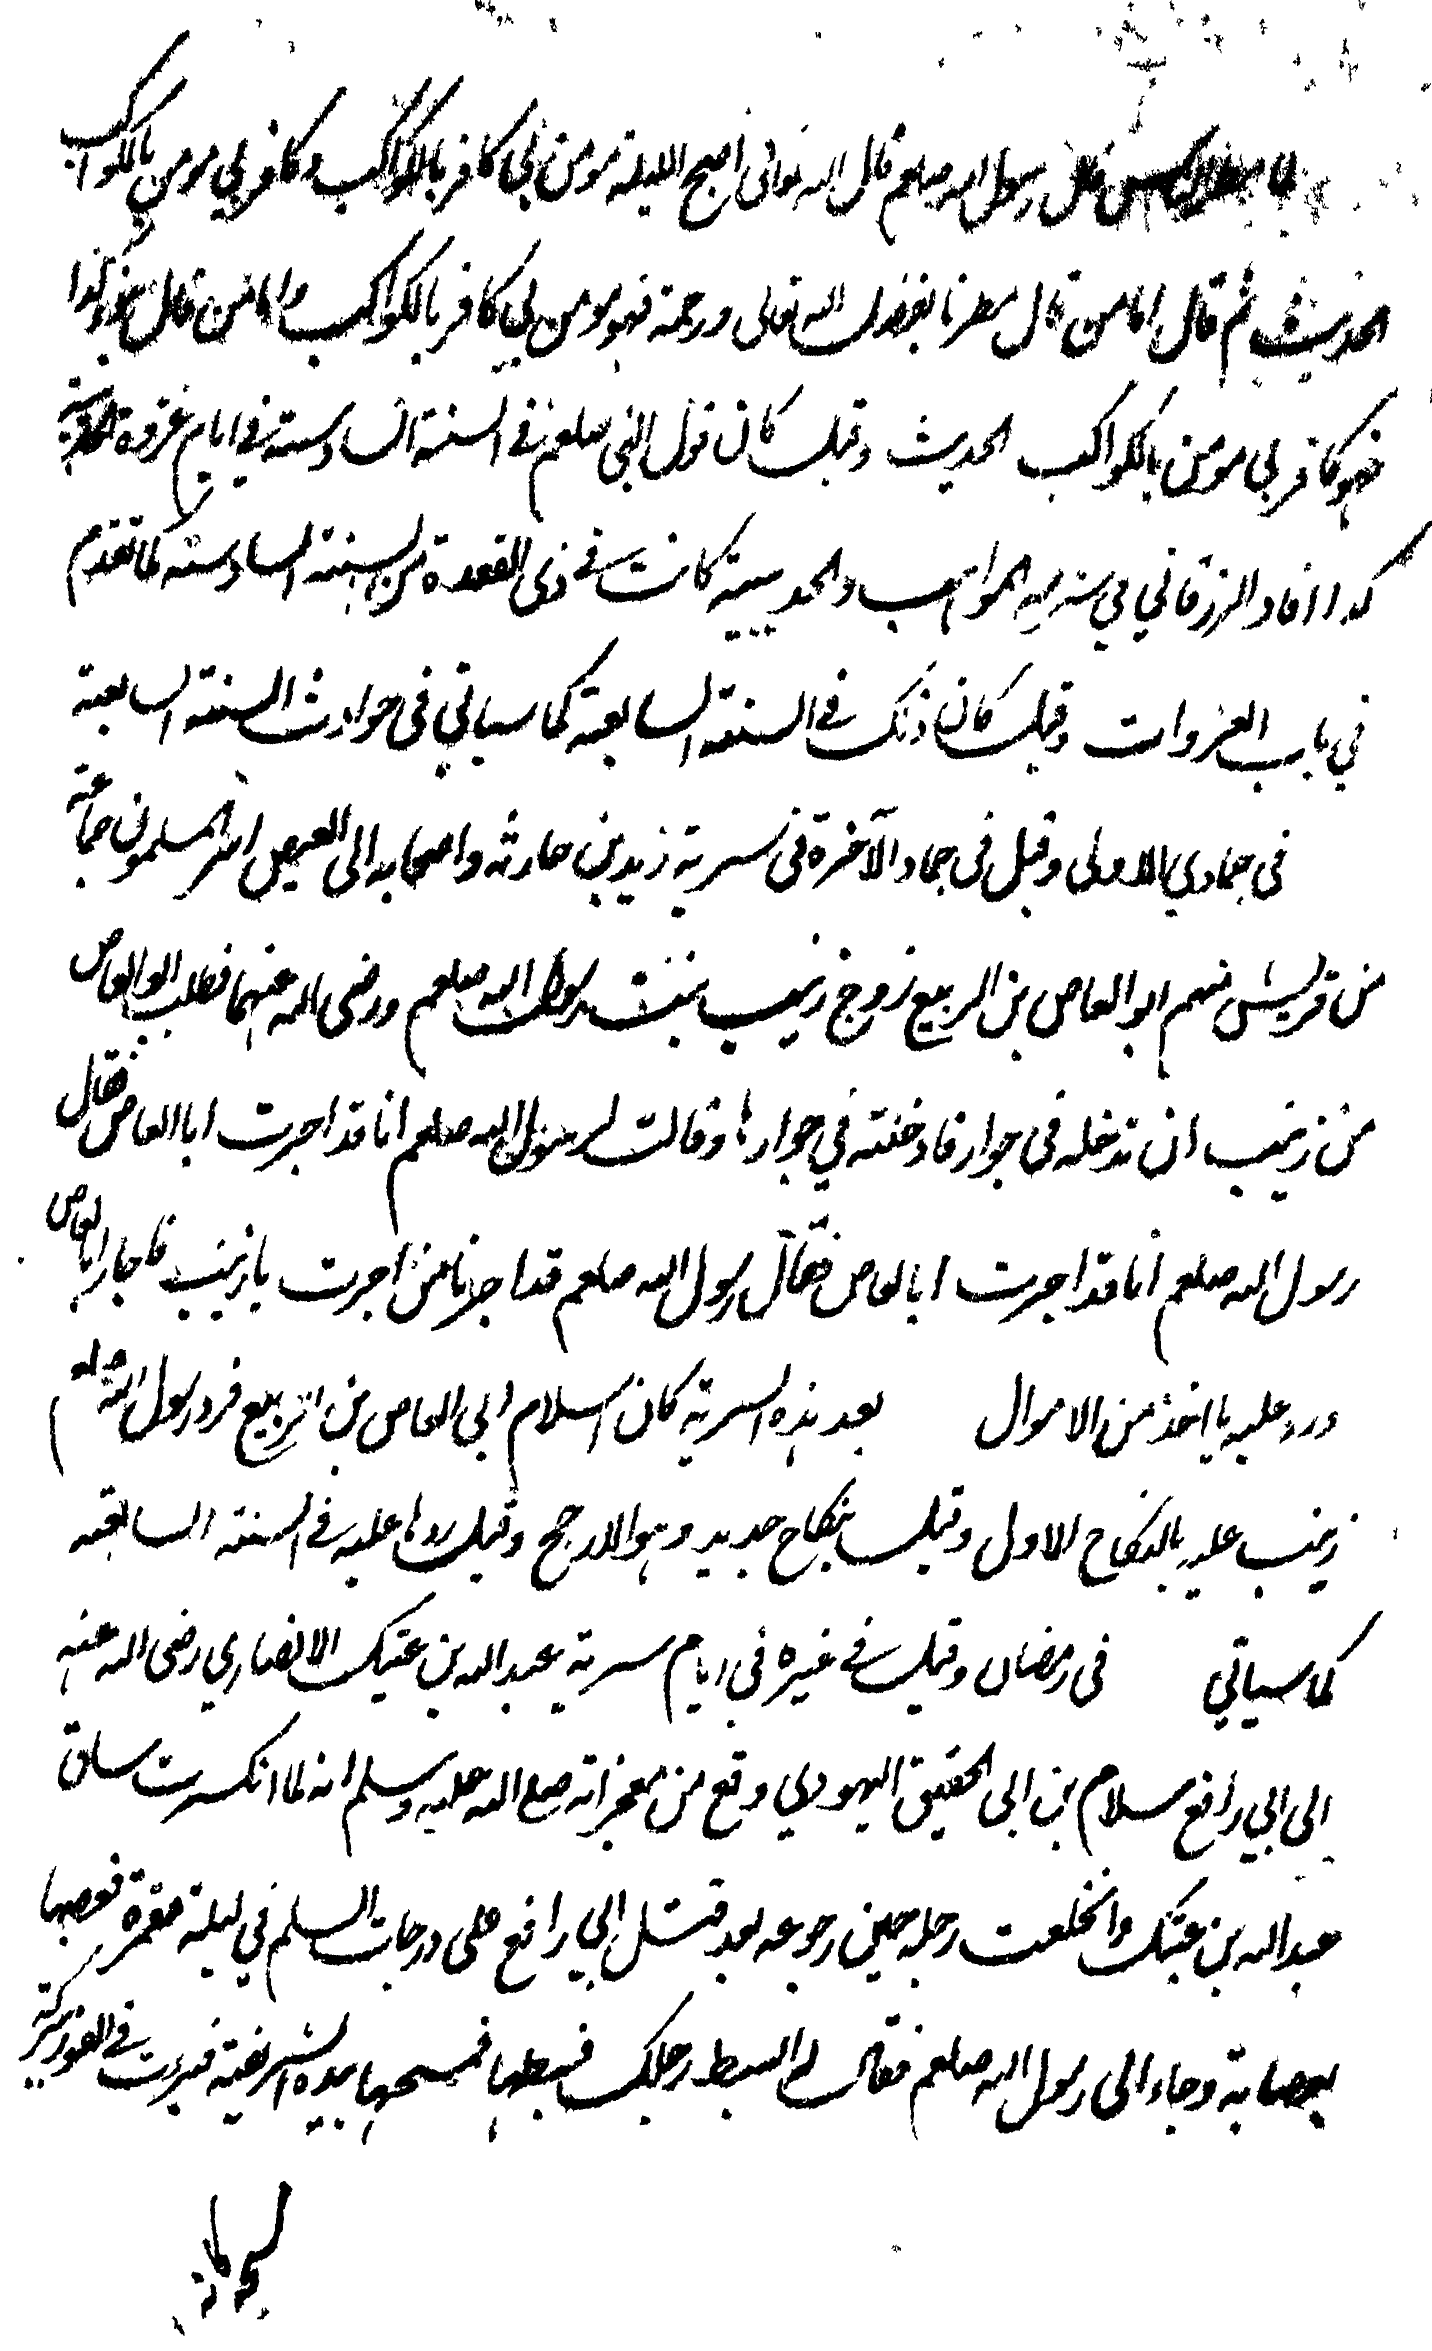 قال رسول الله صلعم قال الله تعالى اصبح الليلة مومن بي كافر بالكواكب وكافر بي مومن بالكواكب
الحديث ثم قال اما من قال مطرنا بفضل الله تعالى ورحمة فهو مومن بي كافر بالكواكب واما من قال بنو كذا
فهو كافر بي مومن بالكواكب الحديث وقيل كان قول النبي صلعم في السنة السادسة في ايام غزوة الحديبية
كذا افاد الزرقاني في شرح المواهب والحديبية كانت في ذي القعدة من السنة السادسة كما تقدم
في باب الغزوات وقيل كان ذلك في السنة السابعة كما سياتي في حوادث السنة السابعة
في جمادي الاولى وقيل في جماد الآخرة في سرية زيد بن حارثة واصحابه الى العيص اسر المسلمون جماعة
من قريش منهم ابو العاص بن الربيع زوج زينب بنت رسول الله صلعم ورضى الله عنهما فطلب ابو العاص
من زينب ان تدخله في جوار فادخلته في جوارها وقالت لرسول الله صلعم انا قد اجرت ابا العاص فقال
رسول الله صلعم انا قد اجرت ابا لعاص فقال رسول الله صلعم قد اجرنا من اجرت يا زينب فاجار ابا لعاص
ورد عليه ما اخذ من الاموال بعد هذه السرية كان اسلام ابي العاص بن الربيع فرد رسول الله صلعم
زينب عليه بالنكاح الاول وقيل بنكاح جديد وهو الارجح وقيل ردها عليه في السنة السابعة
كما سياتي في رمضان وقيل في غيره في ايام سرية عبد الله بن عتيك الانصاري رضى الله عنه
الى ابي رافع سلام بن ابي الحقيق اليهودي وقع من معجزاته صلى الله عليه وسلم انه لما انكسرت ساق
عبد الله بن عتيك وانخلعت رجله حين رجوعه بعد قتل ابي رافع على درجات السلم في ليلة مقمرة فعصبها
بعصابة وجاء الى رسول الله صلعم فقال له ابسط رجلك فبسطها فمسحها بيده الشريفة فبرئت في الفور ببركة